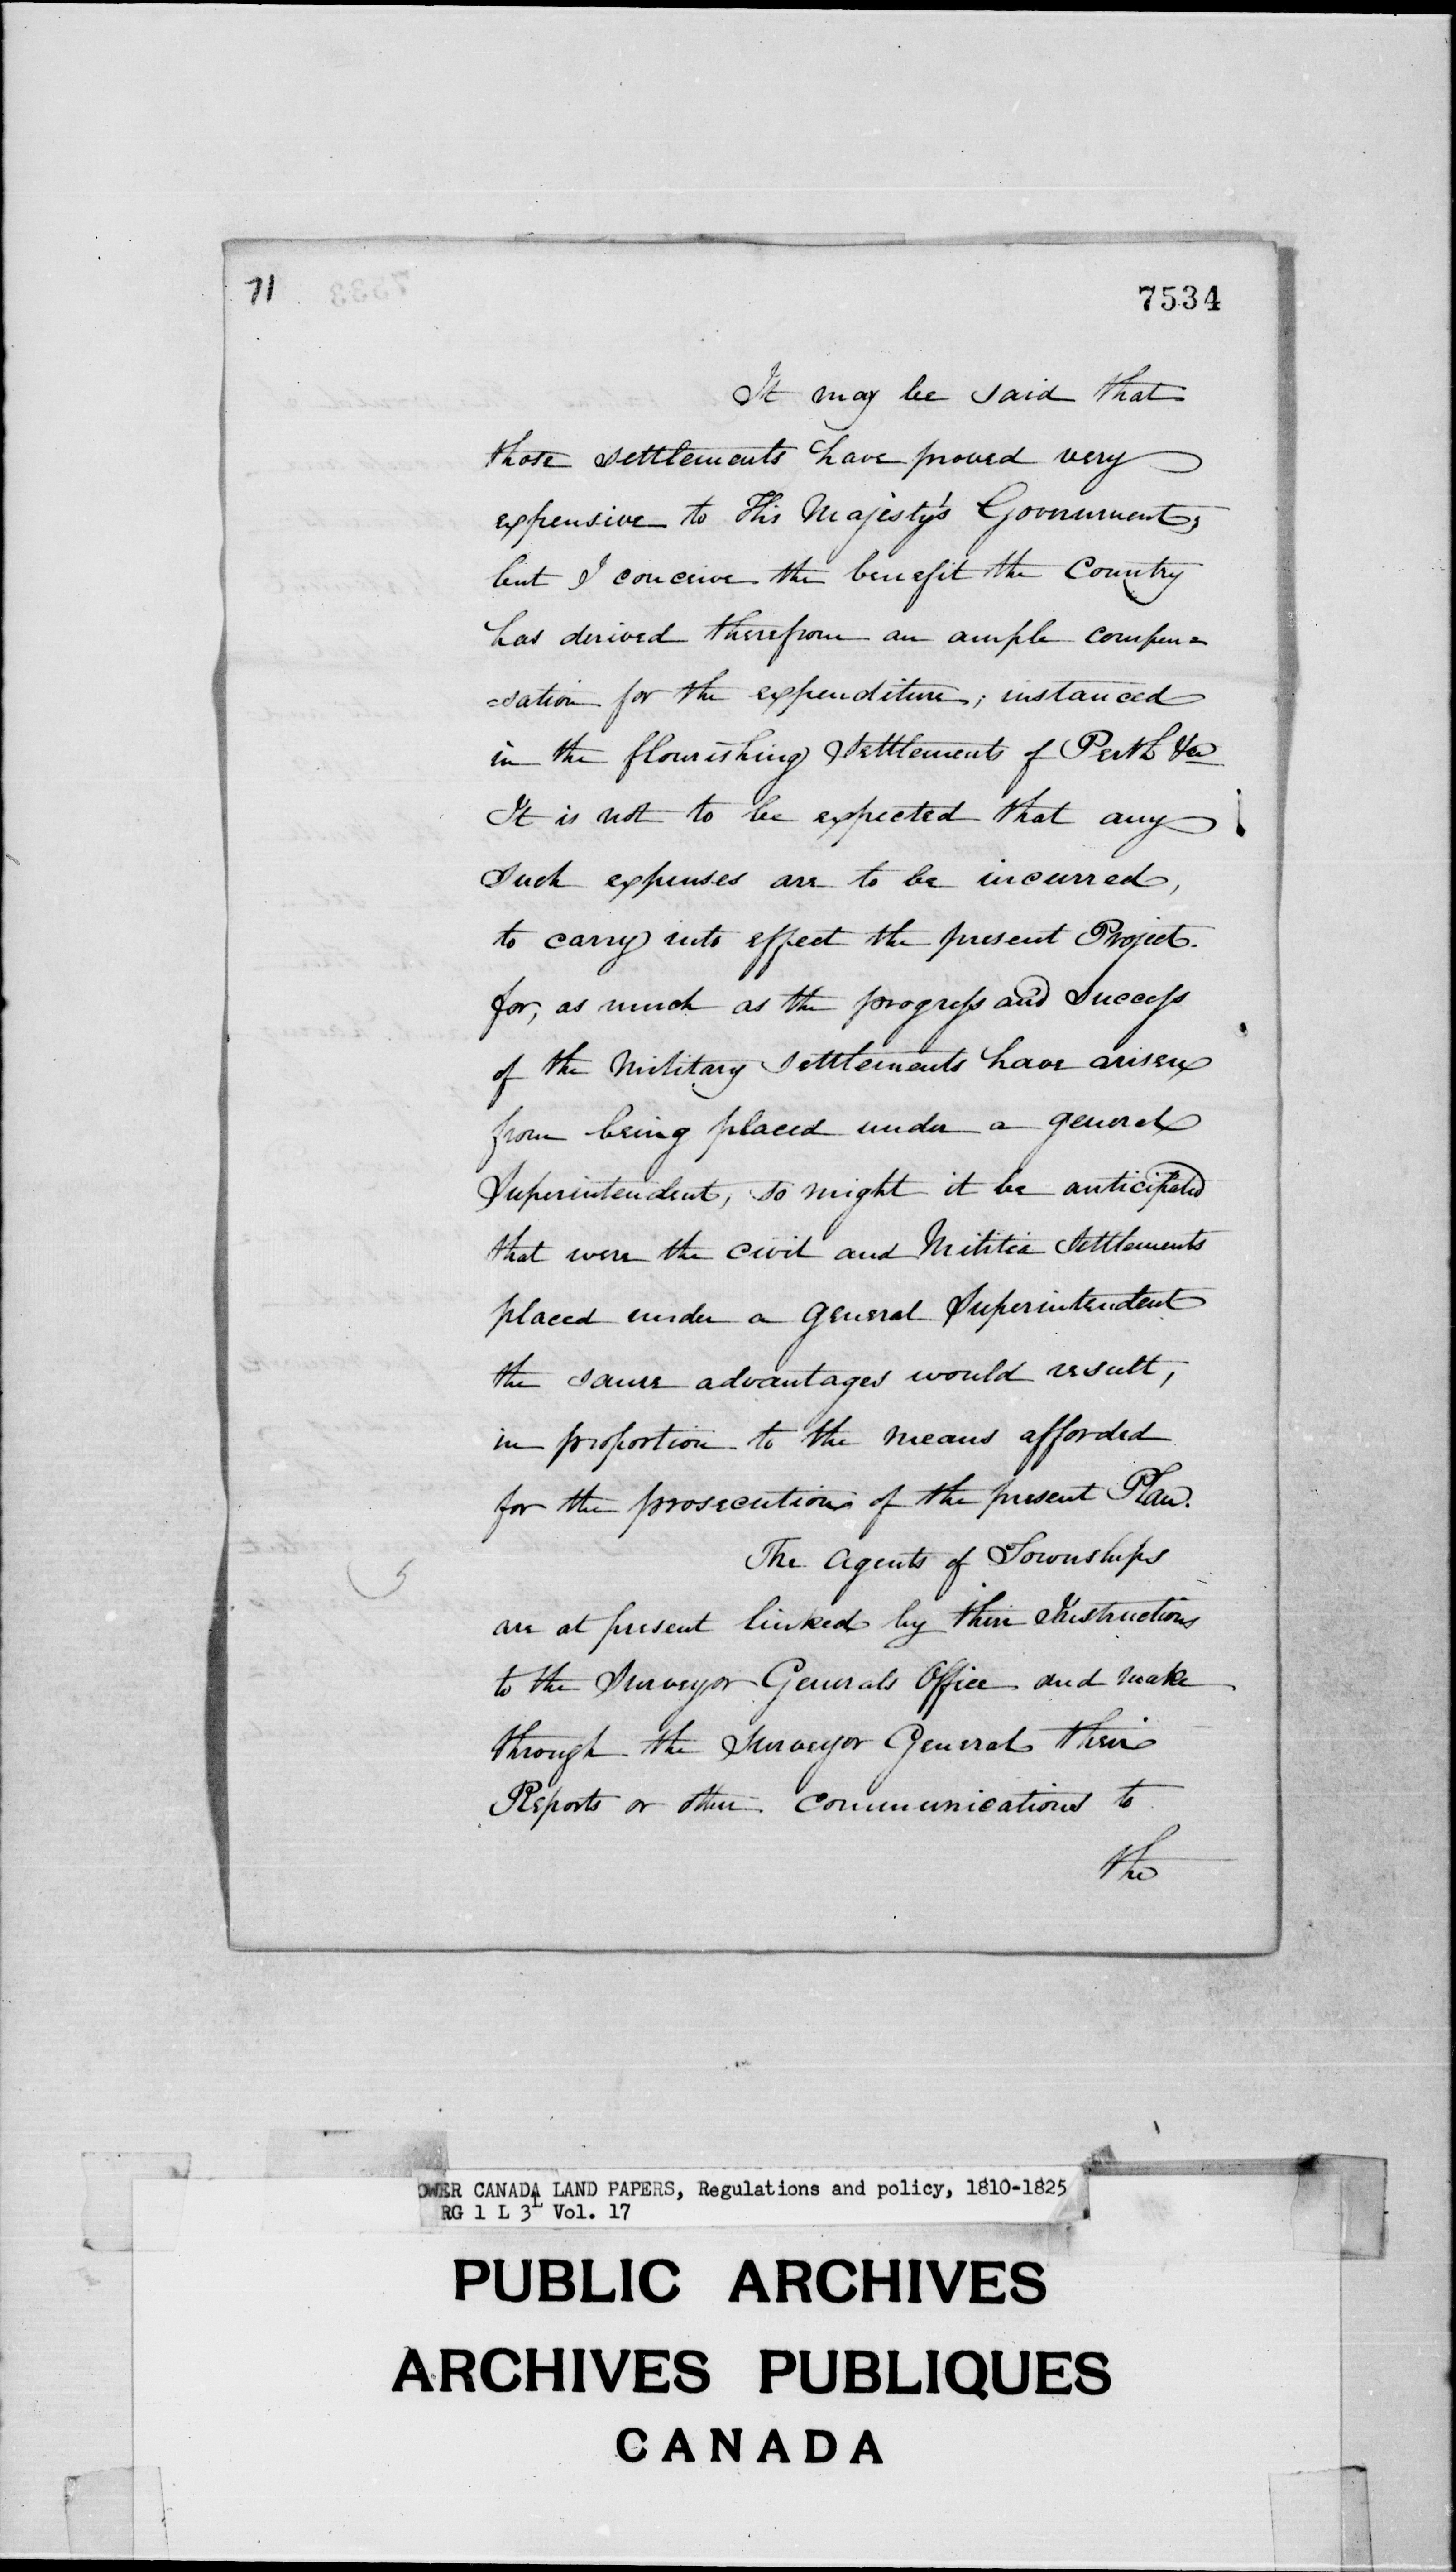 71
7534
It may be said that
those settlements have proved very
expensive to His Majesty's Government;
but I conceive the benefit the Country
has derived therefrom an ample compen=
=sation for the expenditure; instanced
in the flourishing Settlements of Perth &ca
It is not to be expected that any
such expenses are to be incurred,
to carry into effect the present Project.
for, as much as the progress and success
of the Military Settlements have arisen
from being placed under a general
Superintendent, so might it be anticipated
that were the civil and Militia Settlements
placed under a General Superintendent
the same advantages would result,
in proportion to the means afforded
for the prosecution of the present Plan.
The Agents of Townships
are at present linked by their Instructions
to the Surveyor Generals Office and make
through the Surveyor General their
Reports or other communications to
the
OWER CANADA LAND PAPERS, Regulations and policy, 1810-1825
RG 1 L 3L Vol. 17
PUBLIC ARCHIVES
ARCHIVES PUBLIQUES
CANADA